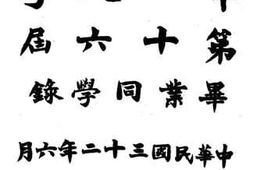 第十六屆
畢業同學錄
中華民國三十二年六月